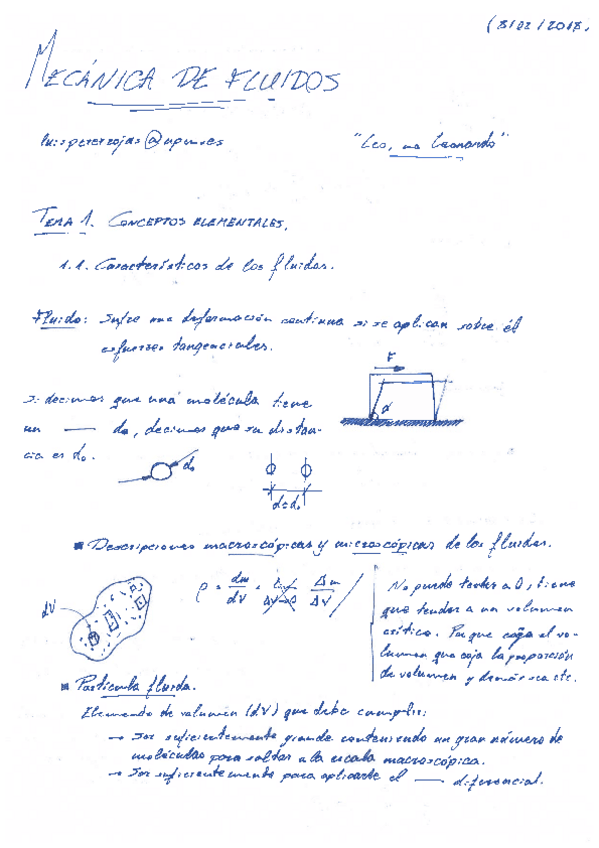 (8/02/2018)
MECÁNICA DE FLUIDOS
luis.perezrojas@upm.es
"Leo, no Leonardo"
TEMA 1. CONCEPTOS ELEMENTALES.
1.1. Características de los fluidos.
Fluido: Sufre una deformación continua si se aplican sobre él
esfuerzos tangenciales.
F
α
Si decimos que una molécula tiene
un — d₀, decimos que su distan-
cia es d₀.
d₀
d≈d₀
Descripciones macroscópicas y microscópicas de los fluidos.
dV
ρ = dm/dV = lim ΔV→0 Δm/ΔV
No puede tender a 0, tiene
que tender a un volumen
crítico. Porque coja el vo-
lumen que coja la proporción
de volumen y demás sea cte.
Partícula fluida.
Elemento de volumen (dV) que debe cumplir:
→ Ser suficientemente grande conteniendo un gran número de
moléculas para saltar a la escala macroscópica.
→ Ser suficientemente para aplicarle el — diferencial.